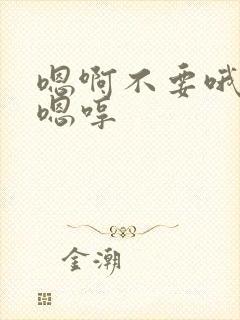 嗯啊不要哦
嗯啍
金潮